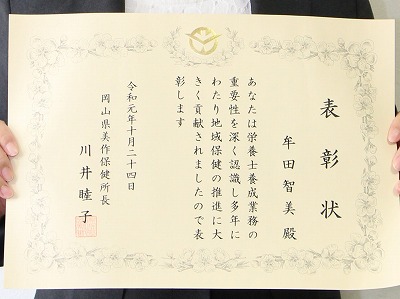 表彰状
牟田智美 殿
あなたは栄養士養成業務の
重要性を深く認識し多年に
わたり地域保健の推進に大
きく貢献されましたので表
彰します
令和元年十月二十四日
岡山県美作保健所長
川井睦子